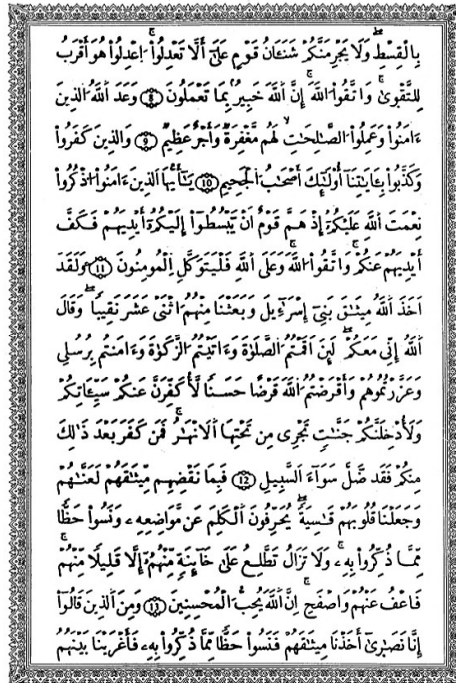 بِالْقِسْطِ ۖ وَلَا يَجْرِمَنَّكُمْ شَنَـَٔانُ قَوْمٍ عَلَىٰٓ أَلَّا تَعْدِلُوا۟ ۚ اعْدِلُوا۟ هُوَ أَقْرَبُ
لِلتَّقْوَىٰ ۖ وَاتَّقُوا۟ اللَّهَ ۚ إِنَّ اللَّهَ خَبِيرٌۢ بِمَا تَعْمَلُونَ ٨ وَعَدَ اللَّهُ الَّذِينَ
ءَامَنُوا۟ وَعَمِلُوا۟ الصَّـٰلِحَـٰتِ ۙ لَهُم مَّغْفِرَةٌ وَأَجْرٌ عَظِيمٌ ٩ وَالَّذِينَ كَفَرُوا۟
وَكَذَّبُوا۟ بِـَٔايَـٰتِنَآ أُو۟لَـٰٓئِكَ أَصْحَـٰبُ الْجَحِيمِ ١٠ يَـٰٓأَيُّهَا الَّذِينَ ءَامَنُوا۟ اذْكُرُوا۟
نِعْمَتَ اللَّهِ عَلَيْكُمْ إِذْ هَمَّ قَوْمٌ أَن يَبْسُطُوٓا۟ إِلَيْكُمْ أَيْدِيَهُمْ فَكَفَّ
أَيْدِيَهُمْ عَنكُمْ ۖ وَاتَّقُوا۟ اللَّهَ ۚ وَعَلَى اللَّهِ فَلْيَتَوَكَّلِ الْمُؤْمِنُونَ ١١ وَلَقَدْ
أَخَذَ اللَّهُ مِيثَـٰقَ بَنِىٓ إِسْرَٰٓءِيلَ وَبَعَثْنَا مِنْهُمُ اثْنَىْ عَشَرَ نَقِيبًا ۖ وَقَالَ
اللَّهُ إِنِّى مَعَكُمْ ۖ لَئِنْ أَقَمْتُمُ الصَّلَوٰةَ وَءَاتَيْتُمُ الزَّكَوٰةَ وَءَامَنتُم بِرُسُلِى
وَعَزَّرْتُمُوهُمْ وَأَقْرَضْتُمُ اللَّهَ قَرْضًا حَسَنًا لَّأُكَفِّرَنَّ عَنكُمْ سَيِّـَٔاتِكُمْ
وَلَأُدْخِلَنَّكُمْ جَنَّـٰتٍ تَجْرِى مِن تَحْتِهَا الْأَنْهَـٰرُ ۚ فَمَن كَفَرَ بَعْدَ ذَٰلِكَ
مِنكُمْ فَقَدْ ضَلَّ سَوَآءَ السَّبِيلِ ١٢ فَبِمَا نَقْضِهِم مِّيثَـٰقَهُمْ لَعَنَّـٰهُمْ
وَجَعَلْنَا قُلُوبَهُمْ قَـٰسِيَةً ۖ يُحَرِّفُونَ الْكَلِمَ عَن مَّوَاضِعِهِۦ ۙ وَنَسُوا۟ حَظًّا
مِّمَّا ذُكِّرُوا۟ بِهِۦ ۚ وَلَا تَزَالُ تَطَّلِعُ عَلَىٰ خَآئِنَةٍ مِّنْهُمْ إِلَّا قَلِيلًا مِّنْهُمْ ۖ
فَاعْفُ عَنْهُمْ وَاصْفَحْ ۚ إِنَّ اللَّهَ يُحِبُّ الْمُحْسِنِينَ ١٣ وَمِنَ الَّذِينَ قَالُوٓا۟
إِنَّا نَصَـٰرَىٰٓ أَخَذْنَا مِيثَـٰقَهُمْ فَنَسُوا۟ حَظًّا مِّمَّا ذُكِّرُوا۟ بِهِۦ فَأَغْرَيْنَا بَيْنَهُمُ